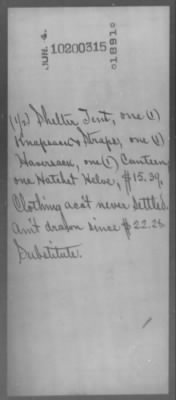 JUN. 4.
10200315
1891
(1/2) Shelter Tent, one (1)
Knapsack & Straps, one (1)
Haversack, one (1) Canteen,
one Hatchet Helve, $15.39,
Clothing acc't never settled.
Am't drawn since $22.28
Substitute.